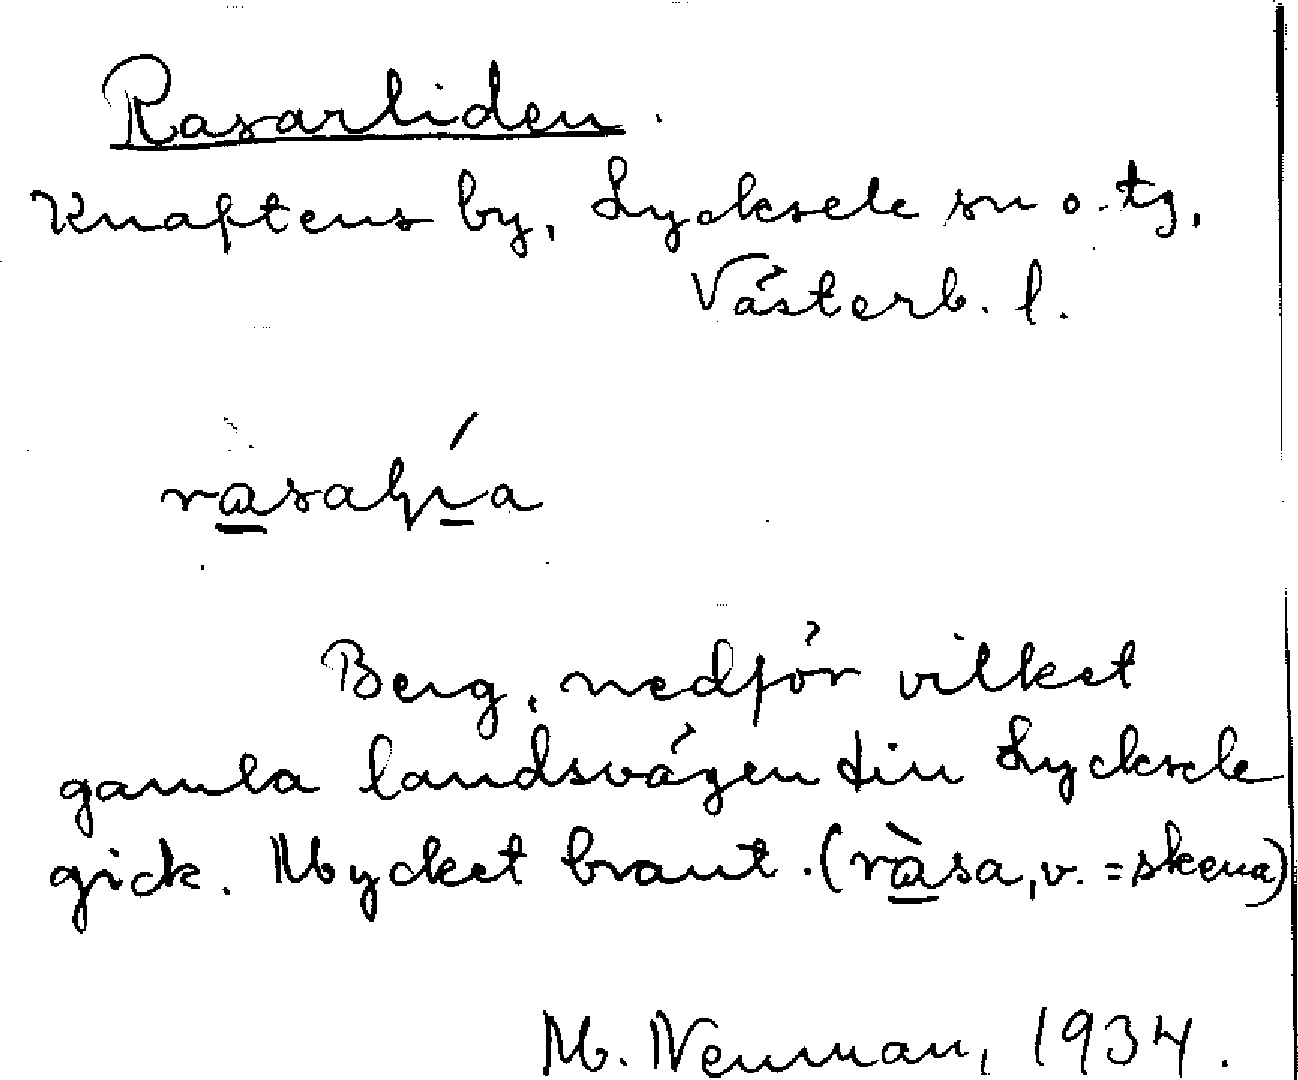 Rasarliden.
Knaftens by, Lycksele sn o. tg,
Västerb. l.
Berg, nedför vilket
gamla landsvägen till Lycksele
gick. Mycket brant. (ràsa, v. = skena)
M. Neuman, 1934.